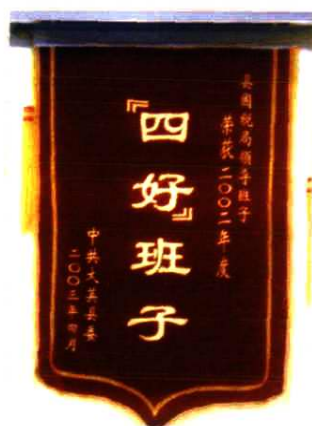 县国税局领导班子
荣获二〇〇二年度
『四好』班子
中共大英县委
二〇〇三年四月